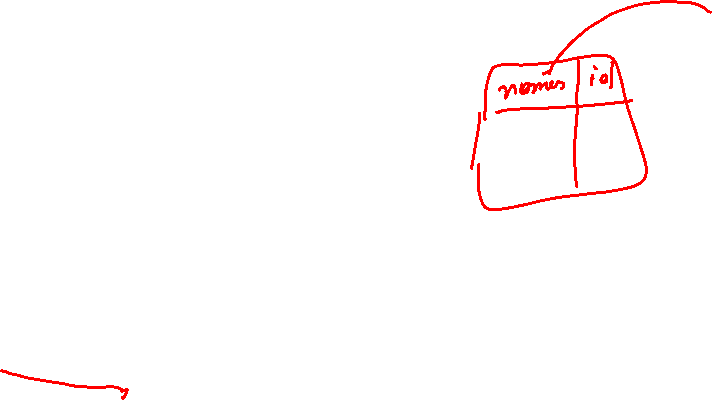 names id